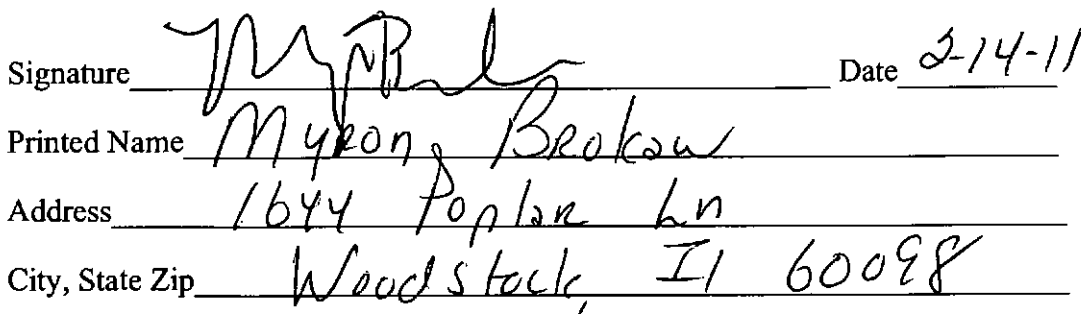 Signature Date 2-14-11
Printed Name Myron Brokaw
Address 1644 Poplar Ln
City, State Zip Woodstock, Il 60098